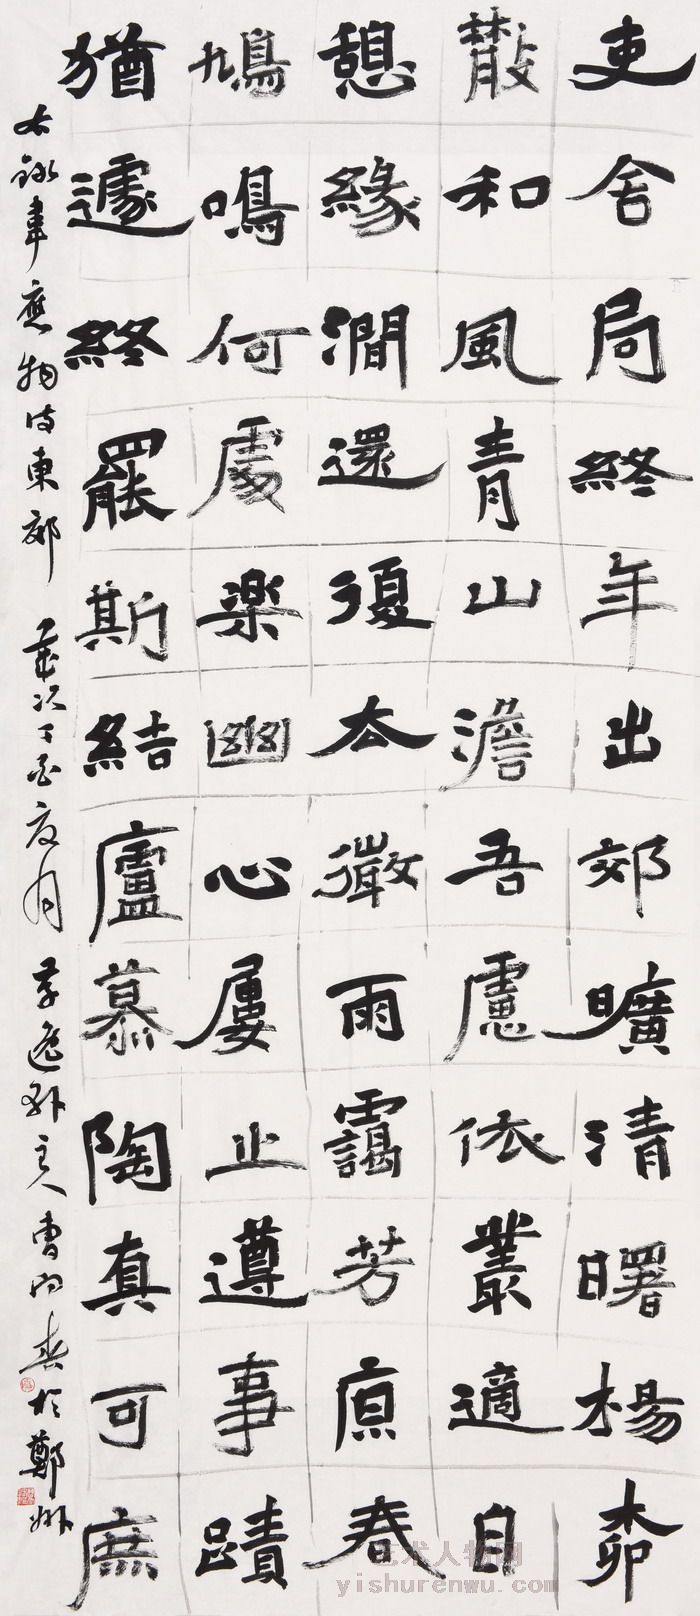 吏舍局終年出郊曠清曙楊桺
散和風青山澹吾慮依叢適自
憩緣澗還復去微雨靄芳原春
鳩鳴何處楽幽心屢止遵事蹟
猶遽終罷斯結廬慕陶真可庶
右錄韋應物詩東郊 歲次丁酉夏月 逸軒主人曹向春於鄭州
艺术人物网
yishurenwu.com